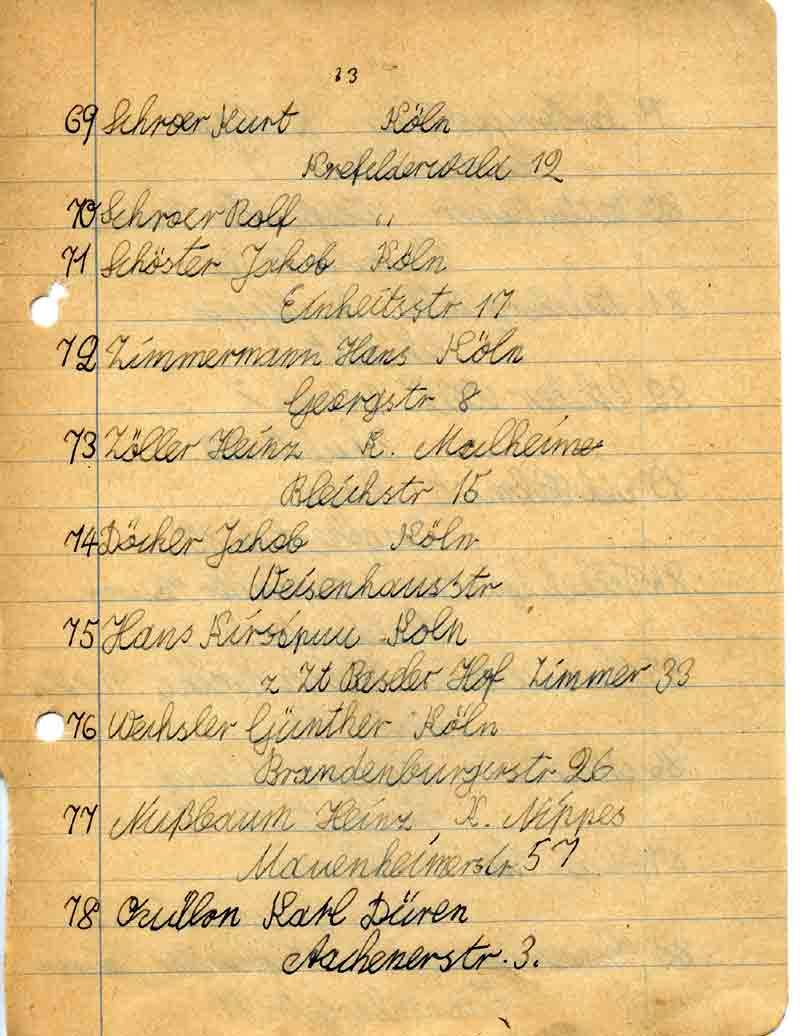 13
69 Schroer Kurt Köln
Krefelderwald 12
70 Schroer Rolf "
71 Schöster Jakob Köln
Einheitsstr 17
72 Zimmermann Hans Köln
Georgstr 8
73 Zöller Heinz K. Mülheim
Bleichstr 15
74 Döcker Jakob Köln
Weisenhausstr
75 Hans Köln
z Zt Basler Hof Zimmer 33
76 Wechsler Günther Köln
Brandenburgerstr 26
77 Nußbaum Heinz K. Nippes
Mauenheimerstr 57
78 Karl Düren
Aachenerstr. 3.